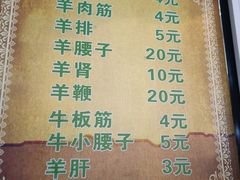 羊肉筋 4元
羊排 5元
羊腰子 20元
羊肾 10元
羊鞭 20元
牛板筋 4元
牛小腰子 5元
羊肝 3元